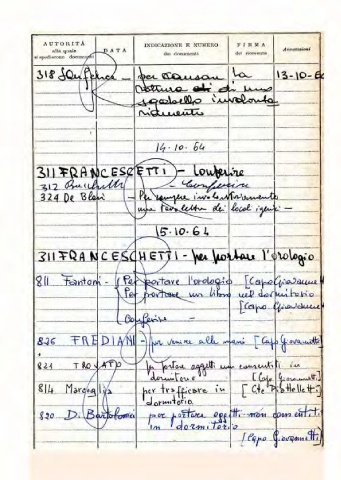 AUTORITÀ
alla quale
si spediscono documenti
DATA
INDICAZIONE E NUMERO
dei documenti
FIRMA
del ricevente
Annotazioni
318 - per la 13-10-6
rottura di di uno
sgabello involonta
riamente
14-10-64
311 FRANCESCETTI - Conferire
312 - Conferire
324 De Blasi - Per rompere involontariamente
una tavoletta dei locali igienici -
15.10.64
311 FRANCESCHETTI - per portare l'orologio
811 Fantoni - Per portare l'orologio [Capo
Per portare un libro nel dormitorio
[Capo
Conferire -
826 FREDIANI - per venire alle mani [Capo Giovannetti]
821 TROVATO portare oggetti non consentiti in
dormitorio [Capo Giovannetti]
814 per trafficare in
dormitorio
820 Di Bartolomei per portare oggetti non consentiti
in dormitorio
[Capo Giovannetti]